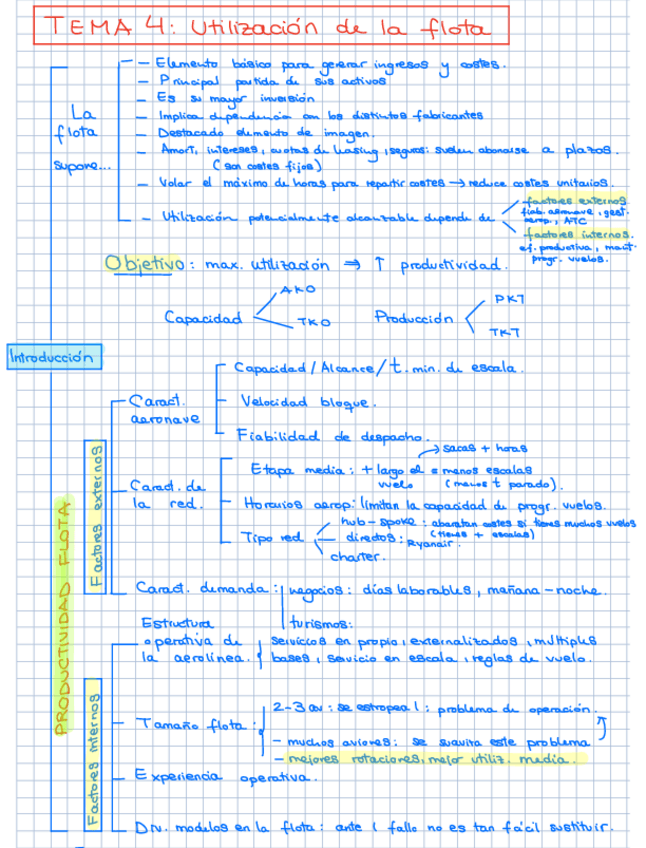 TEMA 4: Utilización de la flota
La flota supone...
- Elemento básico para generar ingresos y costes.
- Principal partida de sus activos
- Es su mayor inversión
- Implica dependencia con los distintos fabricantes
- Destacado elemento de imagen.
- Amort, intereses, cuotas de leasing, seguros: suelen abonarse a plazos.
(son costes fijos)
- Volar el máximo de horas para repartir costes → reduce costes unitarios.
- Utilización potencialmente alcanzable depende de
factores externos
fiab. aeronave, gest.
aerop, ATC
factores internos.
ef. productiva, mant.
progr. vuelos.
Objetivo: max. utilización ⇒ ↑ productividad.
Capacidad
AKO
TKO
Producción
PKT
TKT
Introducción
PRODUCTIVIDAD FLOTA
Factores externos
Caract.
aeronave
Capacidad / Alcance / t. min. de escala.
Velocidad bloque.
Fiabilidad de despacho.
Caract. de
la red.
→ sacas + horas
Etapa media: + largo el = menos escalas
vuelo (menos t parado).
Horarios aerop: limitan la capacidad de progr. vuelos.
Tipo red
hub-spoke: abaratan costes si tienes muchos vuelos
(tienes + escalas)
directos: Ryanair.
charter.
Caract. demanda:
negocios: días laborables, mañana-noche.
turismos:
Factores internos
Estructura
operativa de
la aerolínea.
servicios en propio, externalizados, múltiples
bases, servicio en escala, reglas de vuelo.
Tamaño flota:
2-3 av: se estropea 1: problema de operación.
- muchos aviones: se suaviza este problema
- mejores rotaciones, mejor utiliz. media.
Experiencia operativa.
Div. modelos en la flota: ante 1 fallo no es tan fácil sustituir.